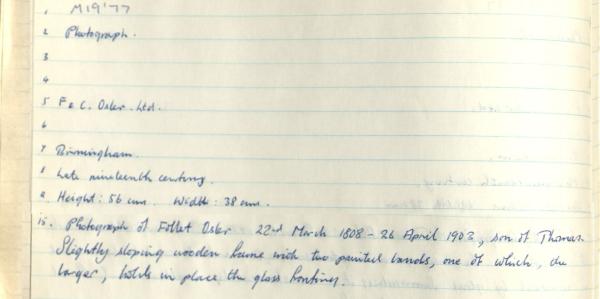 1 M19'77
2 Photograph.
3
4
5 F & C. Osler. Ltd.
6
7 Birmingham.
8 Late nineteenth century.
9. Height: 56 cms. Width: 38 cms.
10. Photograph of Follet Osler 22nd March 1808 - 26 April 1903, son of Thomas.
Slightly sloping wooden frame with two painted bands, one of which, the
larger, holds in place the glass frontings.